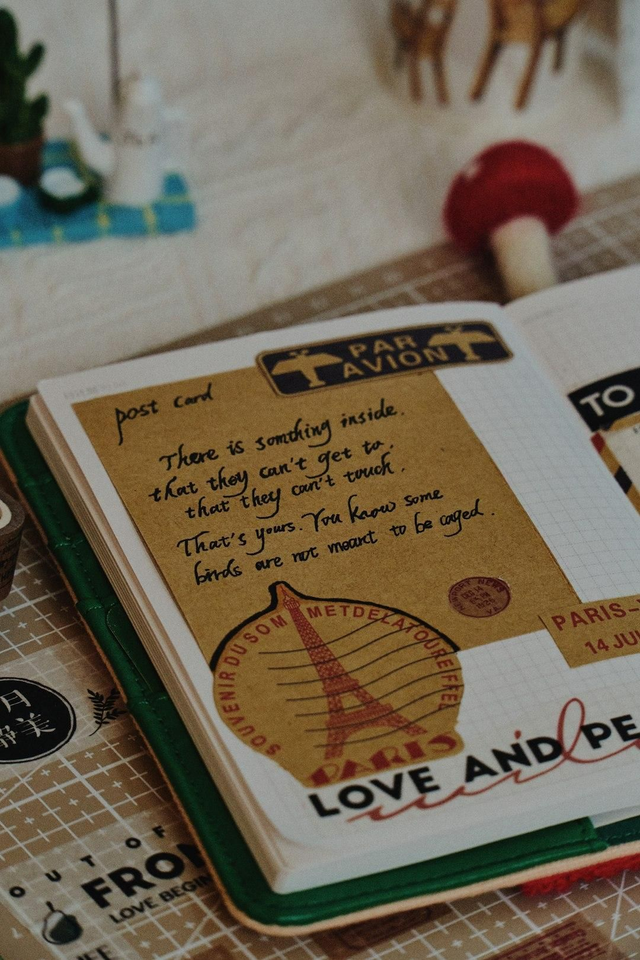 PAR
AVION
post card
There is somthing inside.
that they can't get to.
that they can't touch.
That's yours. You know some
birds are not meant to be caged.
SOUVENIR DU SOMMET DE LA TOUR EIFFEL
PARIS
LOVE AND PE
TO
PARIS-
14 JUI
月
静美
OUT OF
FROM
LOVE BEGIN